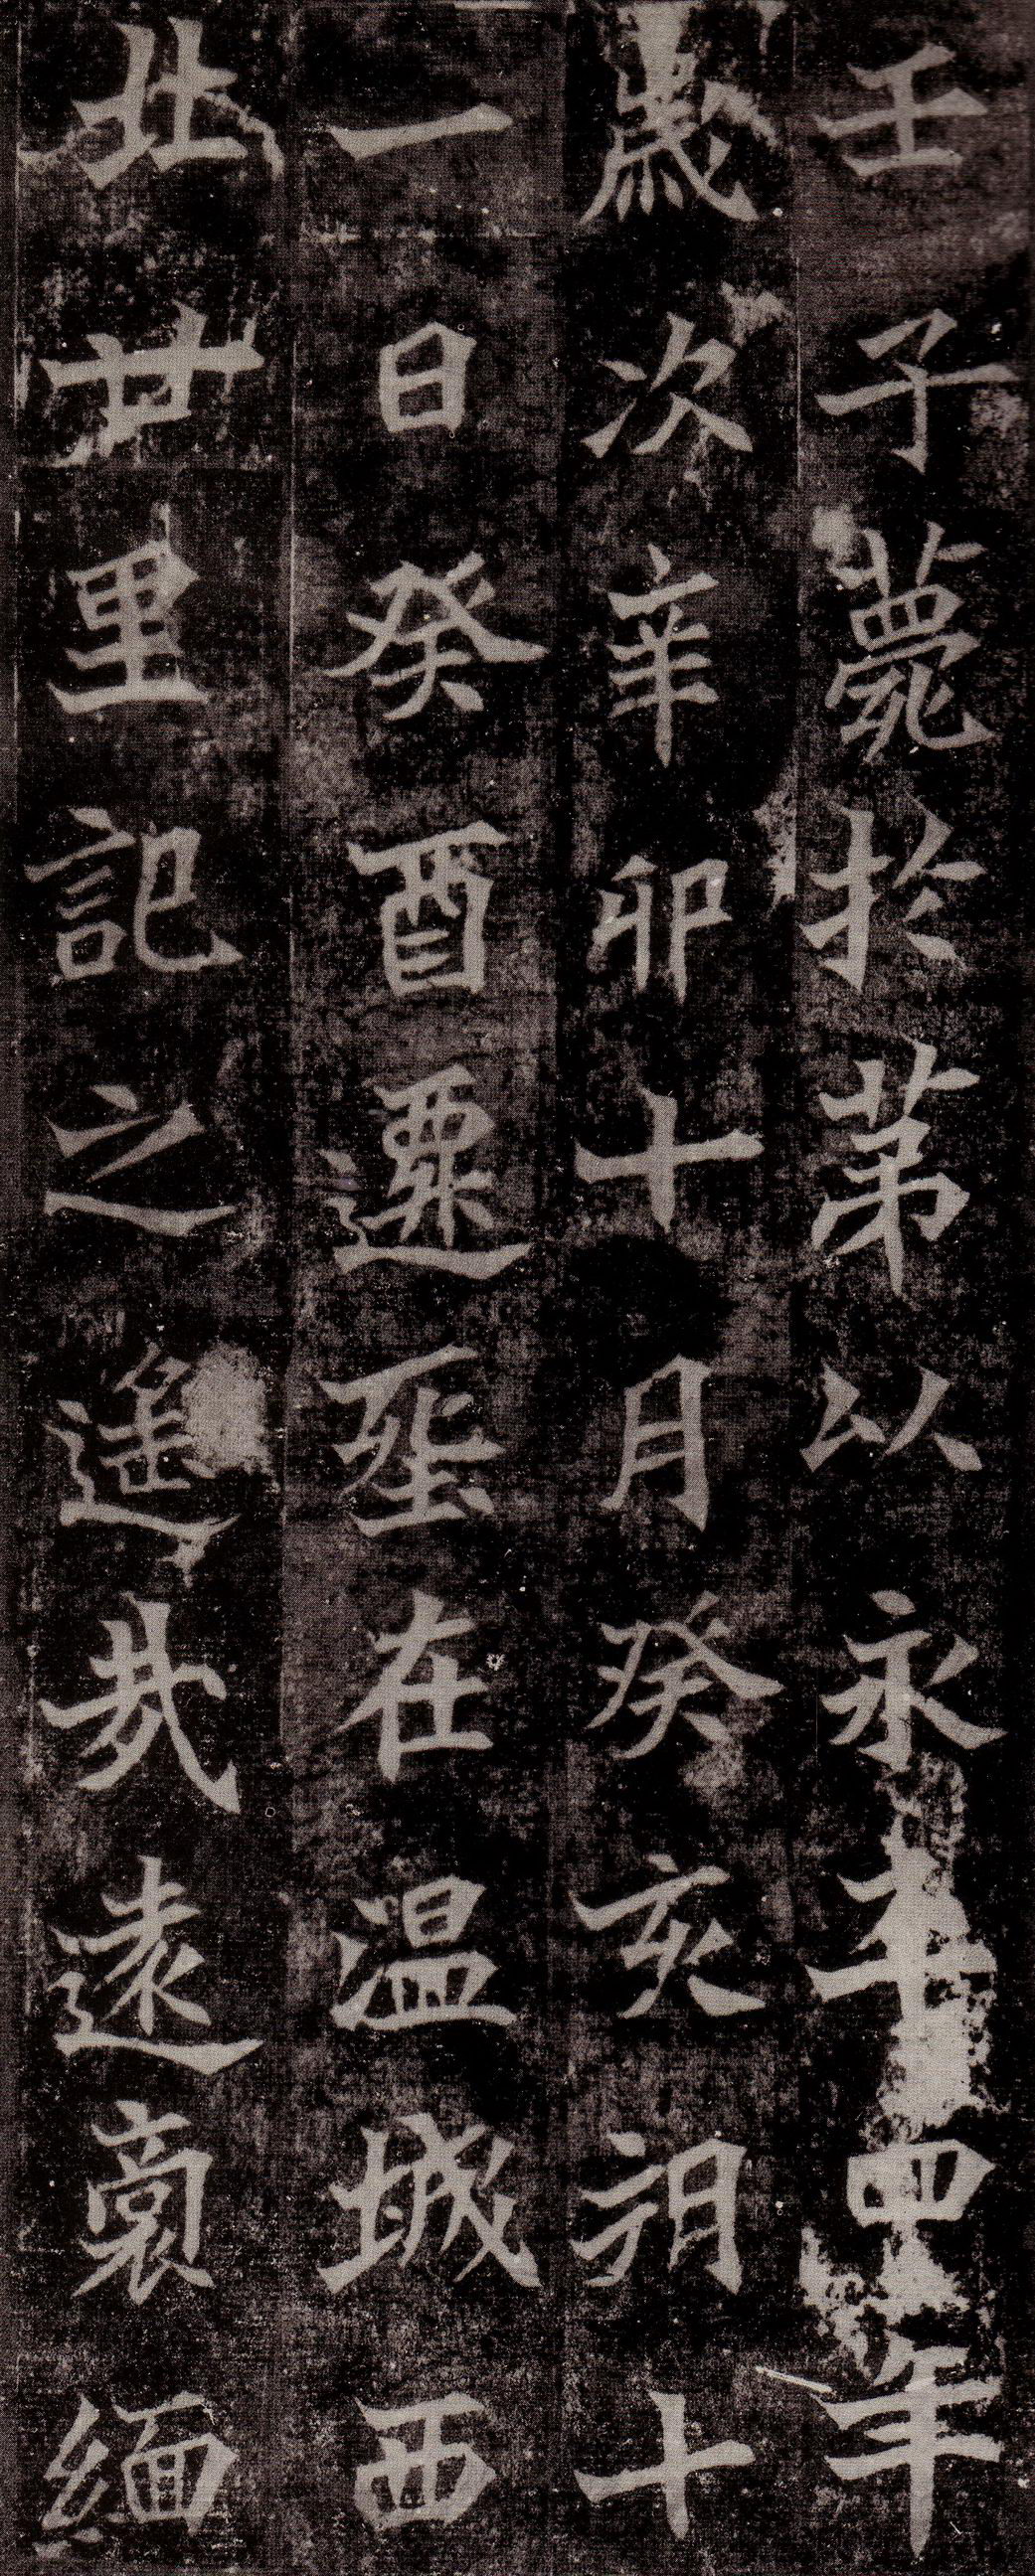 壬子薨於第以永平四年
歲次辛卯十月癸亥朔十
一日癸酉遷葬在温城西
北廿里記之遙哉遠裔緬